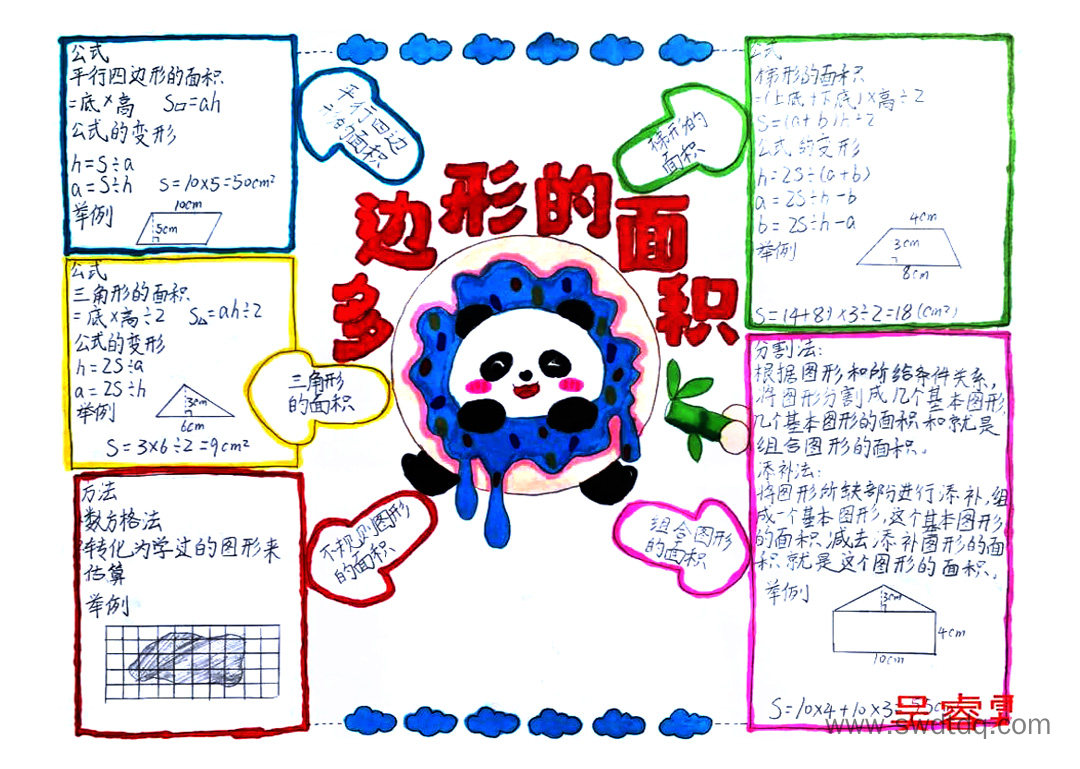 公式
平行四边形的面积
=底×高 S▱=ah
公式的变形
h=S÷a
a=S÷h S=10×5=50cm²
举例
10cm
5cm
平行四边
形的面积
公式
三角形的面积
=底×高÷2 S△=ah÷2
公式的变形
h=2S÷a
a=2S÷h
举例
3cm
6cm
S=3×6÷2=9cm²
三角形
的面积
方法
数方格法
转化为学过的图形来
估算
举例
不规则图形
的面积
多边形的面积
公式
梯形的面积
=(上底+下底)×高÷2
S=(a+b)h÷2
公式的变形
h=2S÷(a+b)
a=2S÷h-b
b=2S÷h-a
举例
4cm
3cm
8cm
S=(4+8)×3÷2=18(cm²)
梯形的
面积
分割法:
根据图形和所给条件关系,
将图形分割成几个基本图形,
几个基本图形的面积和就是
组合图形的面积。
添补法:
将图形所缺部分进行添补,组
成一个基本图形,这个基本图形
的面积减去添补图形的面
积就是这个图形的面积。
举例
3cm
4cm
10cm
S=10×4+10×3
组合图形
的面积
吴睿
www.swdtdq.com